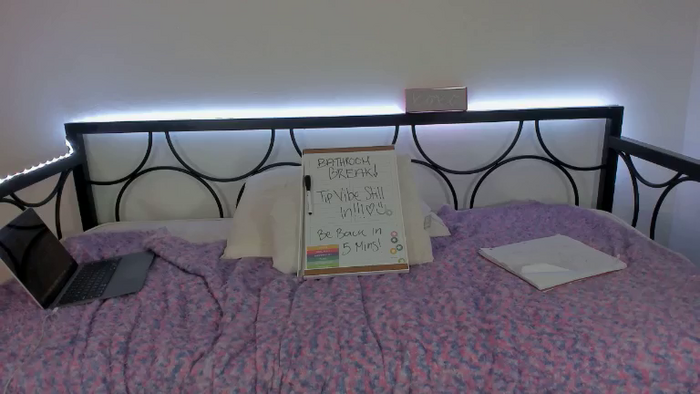 BATHROOM
BREAK!
Tip Vibe Still
In!!!
Be Back in
5 Mins!